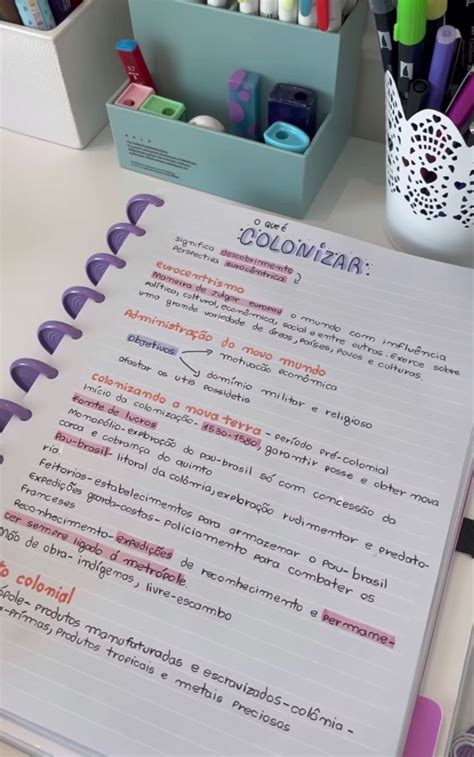 O QUE É
COLONIZAR:
significa descobrimento
Perspectiva eurocêntrica
eurocentrismo
Maneira de julgar europeu o mundo com influência
política, cultural, econômica, social e entre outras. Exerce sobre
uma grande variedade de áreas, países, povos e culturas.
Administração do novo mundo
Objetivos → motivação econômica
domínio militar e religioso
afastar os utis possidetis
colonizando a nova terra
Início da colonização - 1530-1580, período pré-colonial
fonte de lucros garantir posse e obter nova
Monopólio-exploração do pau-brasil só com concessão da
coroa e cobrança do quinto
Pau-brasil- litoral da colômia, exploração rudimentar e predato-
ria
Feitorias-estabelecimentos para armazenar o pau-brasil
Expedições guarda-costas- policiamento para combater os
franceses
Reconhecimento- expedições de reconhecimento e permame-
cer sempre ligado á metrópole
mão de obra- indígenas, livre-escambo
to colonial
ópole- produtos manufaturadas e escravizados-colômia-
s-primas, produtos tropicais e metais preciosos